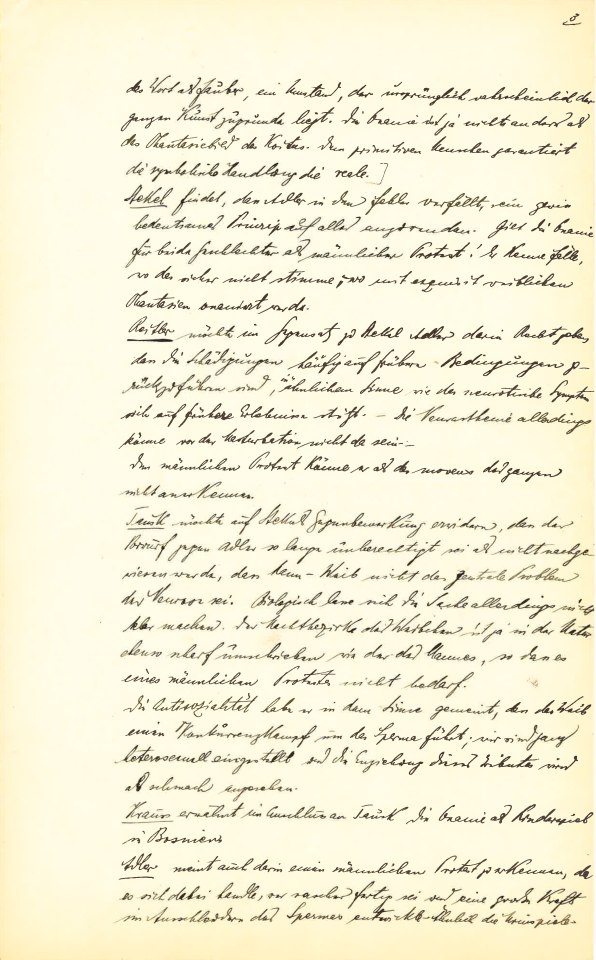 8
das Wort als Zauber, ein Umstand, der ursprünglich wahrscheinlich der
ganzen Kunst zugrunde liegt. Die Onanie ist ja nichts anderes als
das Phantasiebild des Koitus. Dem primitiven Menschen garantiert
die symbolische Handlung die reale.]
Stekel findet, dass Adler in den Fehler verfällt, sein gewiss
bedeutsames Prinzip auf alles anzuwenden. Gilt die Onanie
für beide Geschlechter als männlicher Protest? Er kenne Fälle,
wo das sicher nicht stimme, wo mit exquisit weiblichen
Phantasien onaniert werde.
Reitler möchte im Gegensatz zu Stekel Adler darin Recht geben,
dass die Schädigungen häufig auf frühere Bedingungen zu-
rückzuführen sind, ähnlichem Sinne wie das neurotische Symptom
sich auf frühere Erlebnisse stützt. – Die Neurasthenie allerdings
könne vor der Masturbation nicht da sein. –
Den männlichen Protest könne er als das movens des ganzen
nicht anerkennen.
Tausk möchte auf Stekels Gegenbemerkung erwidern, dass der
Vorwurf gegen Adler so lange unberechtigt sei als nicht nachge
wiesen werde, dass Mann – Weib nicht das zentrale Problem
der Neurose sei. Biologisch lasse sich die Sache allerdings nicht
klar machen. Der Machtbezirk des Weibchens ist ja in der Natur
ebenso scharf umschrieben wie der des Mannes, so dass es
eines männlichen Protestes nicht bedarf.
Die Antisozialität habe er in dem Sinne gemeint, dass das Weib
einen Konkurrenzkampf um das Sperma führt; wir sind ganz
heterosexuell eingestellt und die Entziehung dieses Tributes wird
als schmach angesehen.
Krauss erwähnt im Anschluss an Tausk die Onanie als Kinderspiel
in Bosnien
Adler meint auch darin einen männlichen Protest zu erkennen, da
es sich dabei handle, wer rascher fertig sei und eine grosse Kraft
im Ausschleudern des Spermas entwickle. Ähnlich die